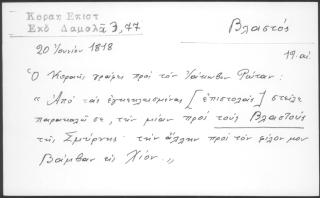 Κοραη Επιστ
Εκδ Δαμαλᾶ Γ, 77
Βλαστός
20 Ἰουνίου 1818
19. αἰ.
Ὁ Κοραῆς γράφει πρὸς τὸν Ἰάκωβον Ρώταν:
« Ἀπὸ τὰς ἐγκεκλεισμένας [ἐπιστολὰς] στεῖλε
παρακαλῶ σε, τὴν μίαν πρὸς τοὺς Βλαστοὺς
τῆς Σμύρνης· τὴν ἄλλην πρὸς τὸν φίλον μου
Βάμβαν εἰς Χίον.»